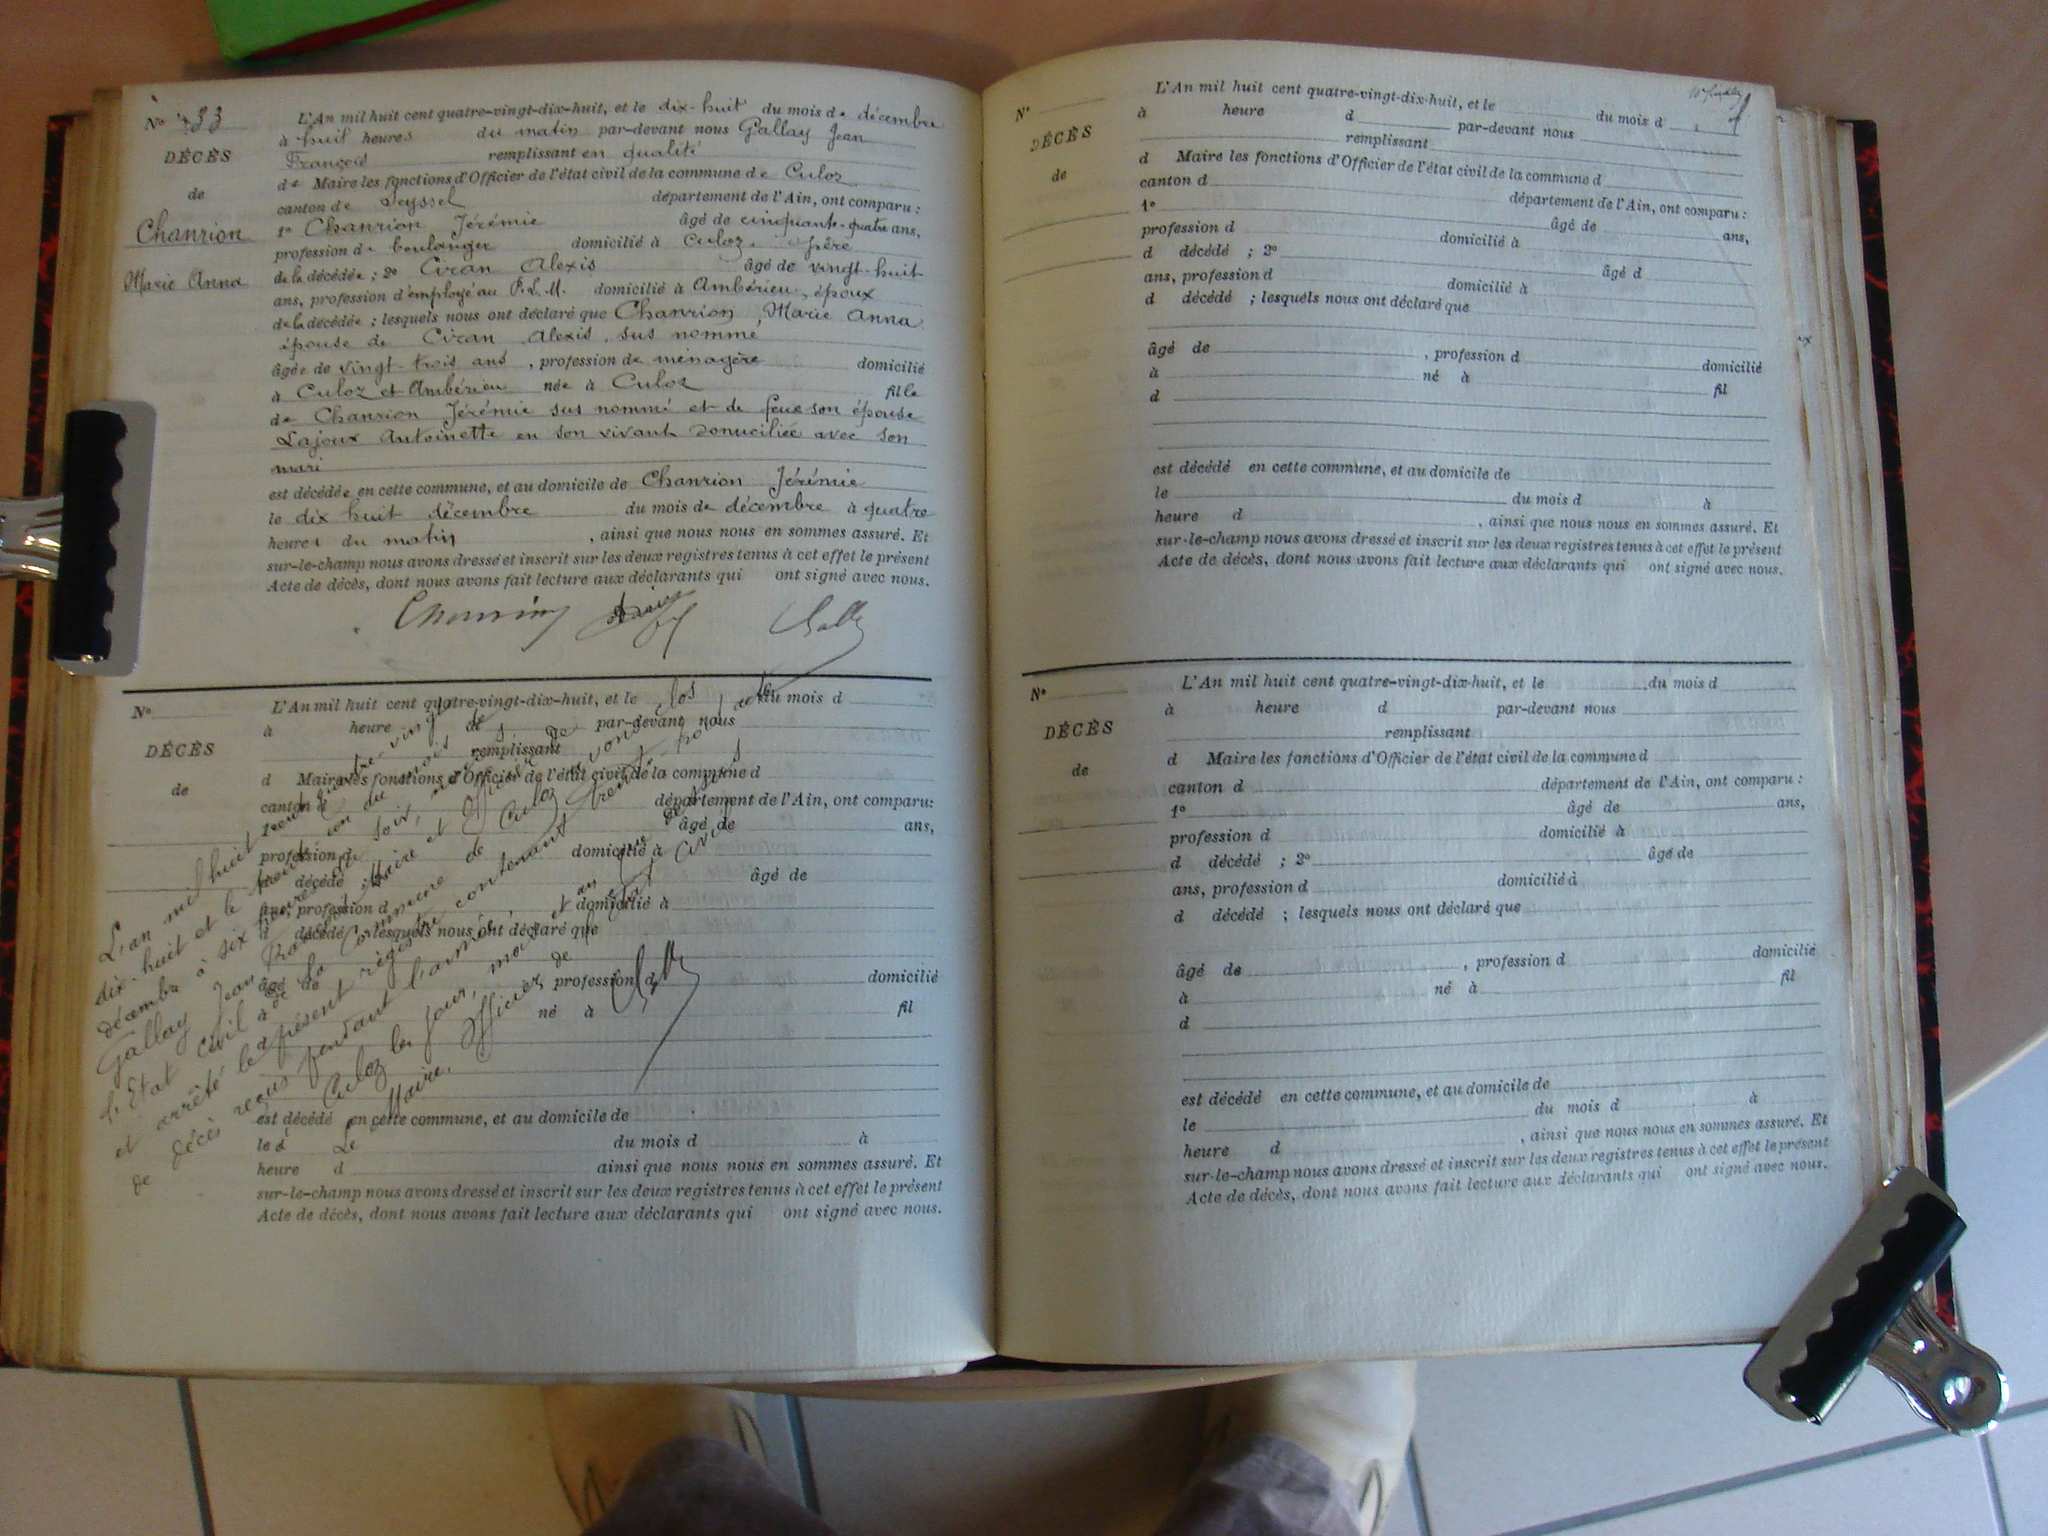 N° 33
DÉCÈS
de
Chanrion
Marie Anna
L'An mil huit cent quatre-vingt-dix-huit, et le dix-huit du mois de décembre
à huit heures du matin par-devant nous Gallay Jean
François remplissant en qualité
de Maire les fonctions d'Officier de l'état civil de la commune de Culoz
canton de Seyssel département de l'Ain, ont comparu :
1° Chanrion Jérémie âgé de cinquante-quatre ans,
profession de boulanger domicilié à Culoz, frère
de la décédée ; 2° Ciran Alexis âgé de vingt-huit
ans, profession d'employé au P.L.M. domicilié à Ambérieu, époux
de la décédée ; lesquels nous ont déclaré que Chanrion Marie Anna
épouse de Ciran Alexis, sus nommé,
âgée de vingt-trois ans , profession de ménagère domicilié
à Culoz et Ambérieu née à Culoz fille
de Chanrion Jérémie sus nommé et de feue son épouse
Lajoux Antoinette en son vivant domiciliée avec son
mari
est décédée en cette commune, et au domicile de Chanrion Jérémie
le dix huit décembre du mois de décembre à quatre
heures du matin , ainsi que nous nous en sommes assuré. Et
sur-le-champ nous avons dressé et inscrit sur les deux registres tenus à cet effet le présent
Acte de décès, dont nous avons fait lecture aux déclarants qui ont signé avec nous.
Chanrion
N°
DÉCÈS
de
L'An mil huit cent quatre-vingt-dix-huit, et le du mois d
à heure d par-devant nous
remplissant
d Maire les fonctions d'Officier de l'état civil de la commune d
canton d département de l'Ain, ont comparu :
1° âgé de ans,
profession d domicilié à
d décédé ; 2° âgé de
ans, profession d domicilié à
d décédé ; lesquels nous ont déclaré que
âgé de , profession d domicilié
à né à fil
d
est décédé en cette commune, et au domicile de
le du mois d à
heure d ainsi que nous nous en sommes assuré. Et
sur-le-champ nous avons dressé et inscrit sur les deux registres tenus à cet effet le présent
Acte de décès, dont nous avons fait lecture aux déclarants qui ont signé avec nous.
L'an mil huit cent quatre-vingt
dix-huit et le trente un du mois de
décembre à six heures du soir,
Gallay Jean François Maire et Officier de
l'Etat civil de la Commune de Culoz avons clos
et arrêté le présent registre contenant trente trois actes
de décès reçus pendant l'année
Culoz les jour, mois et an que dessus
Le Maire, Officier de l'état civil
N°
DÉCÈS
de
L'An mil huit cent quatre-vingt-dix-huit, et le du mois d
à heure d par-devant nous
remplissant
d Maire les fonctions d'Officier de l'état civil de la commune d
canton d département de l'Ain, ont comparu :
1° âgé de ans,
profession d domicilié à
d décédé ; 2° âgé d
ans, profession d domicilié à
d décédé ; lesquels nous ont déclaré que
âgé de , profession d domicilié
à né à fil
d
est décédé en cette commune, et au domicile de
le du mois d à
heure d , ainsi que nous nous en sommes assuré. Et
sur-le-champ nous avons dressé et inscrit sur les deux registres tenus à cet effet le présent
Acte de décès, dont nous avons fait lecture aux déclarants qui ont signé avec nous.
N°
DÉCÈS
de
L'An mil huit cent quatre-vingt-dix-huit, et le du mois d
à heure d par-devant nous
remplissant
d Maire les fonctions d'Officier de l'état civil de la commune d
canton d département de l'Ain, ont comparu :
1° âgé de ans,
profession d domicilié à
d décédé ; 2° âgé de
ans, profession d domicilié à
d décédé ; lesquels nous ont déclaré que
âgé de , profession d domicilié
à né à fil
d
est décédé en cette commune, et au domicile de
le du mois d à
heure d , ainsi que nous nous en sommes assuré. Et
sur-le-champ nous avons dressé et inscrit sur les deux registres tenus à cet effet le présent
Acte de décès, dont nous avons fait lecture aux déclarants qui ont signé avec nous.